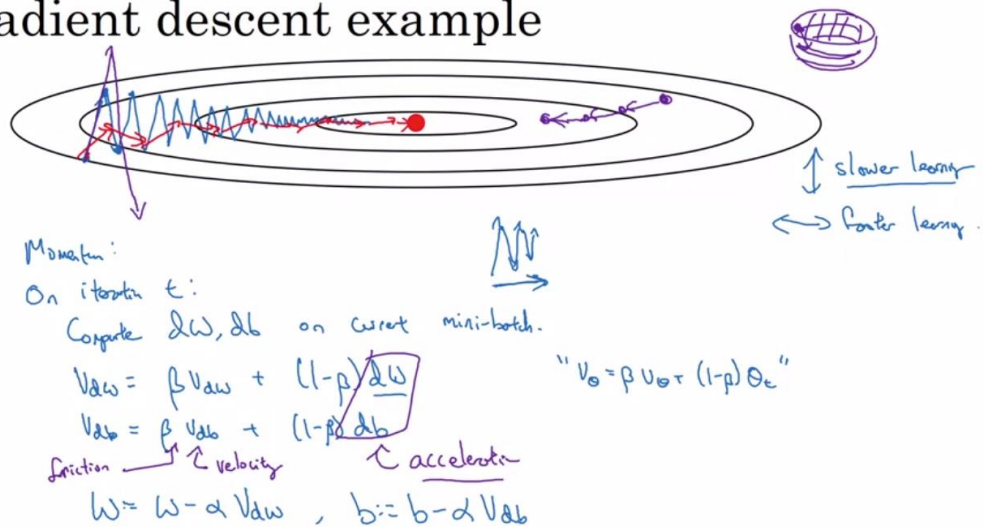 adient descent example
slower learning
faster learning.
Momentum:
On iteration t:
Compute dW, db on current mini-batch.
Vdw = βVdw + (1-β) dW
"Vθ = βVθ + (1-β) θt"
Vdb = βVdb + (1-β) db
friction velocity acceleration
W:= W-αVdw , b:= b-αVdb